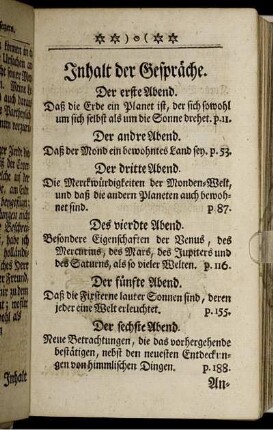 Inhalt der Gespräche.
Der erste Abend.
Daß die Erde ein Planet ist, der sich sowohl
um sich selbst als um die Sonne drehet. p. 11.
Der andre Abend.
Daß der Mond ein bewohntes Land sey. p. 53.
Der dritte Abend.
Die Merckwürdigkeiten der Monden-Welt,
und daß die andern Planeten auch bewoh-
net sind. p. 87.
Des vierdte Abend.
Besondere Eigenschaften der Venus, des
Mercurius, des Mars, des Jupiters und
des Saturns, als so vieler Welten. p. 116.
Der fünfte Abend.
Daß die Fixsterne lauter Sonnen sind, deren
jede eine Welt erleuchtet. p. 155.
Der sechste Abend.
Neue Betrachtungen, die das vorhergehende
bestätigen, nebst den neuesten Entdeckun-
gen von himmlischen Dingen. p. 188.
An-
Inhalt